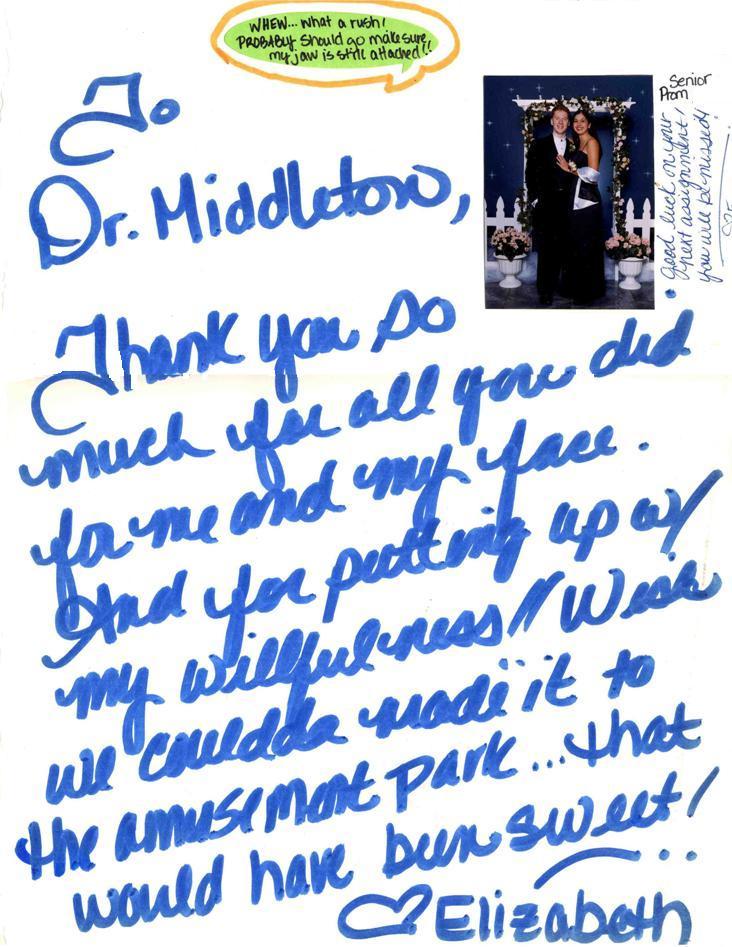 WHEW... what a rush!
PROBABLY should go make sure
my jaw is still attached!!
Senior
Prom
Good luck on your
next assignment!
you will be missed!
To
Dr. Middleton,
Thank you so
much for all you did
for me and my face.
And for putting up w/
my willfulness!! Wish
we couldda made it to
the amusement park...that
would have been sweet!
Elizabeth